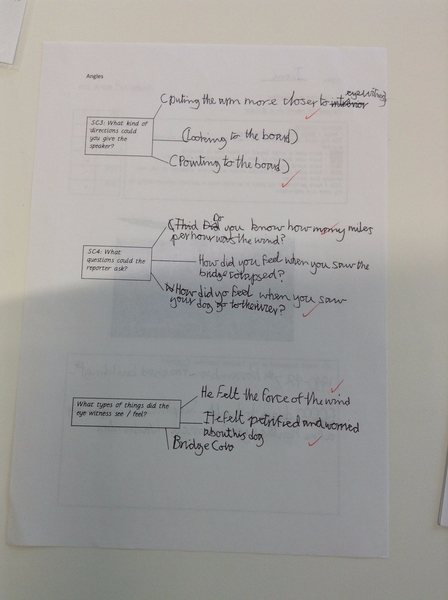 Angles
eye witness
(puting the arm more closer to interior
SC3: What kind of
directions could
you give the
speaker?
(Looking to the board)
(Pointing to the board)
Do
(Did you know how many miles
per hour was the wind?
SC4: What
questions could the
reporter ask?
How did you feel when you saw the
bridge colapsed?
How did yo feel when you saw
your dog go to the river?
What types of things did the
eye witness see / feel?
He felt the force of the wind
He felt petrified and worried
about his dog
Bridge